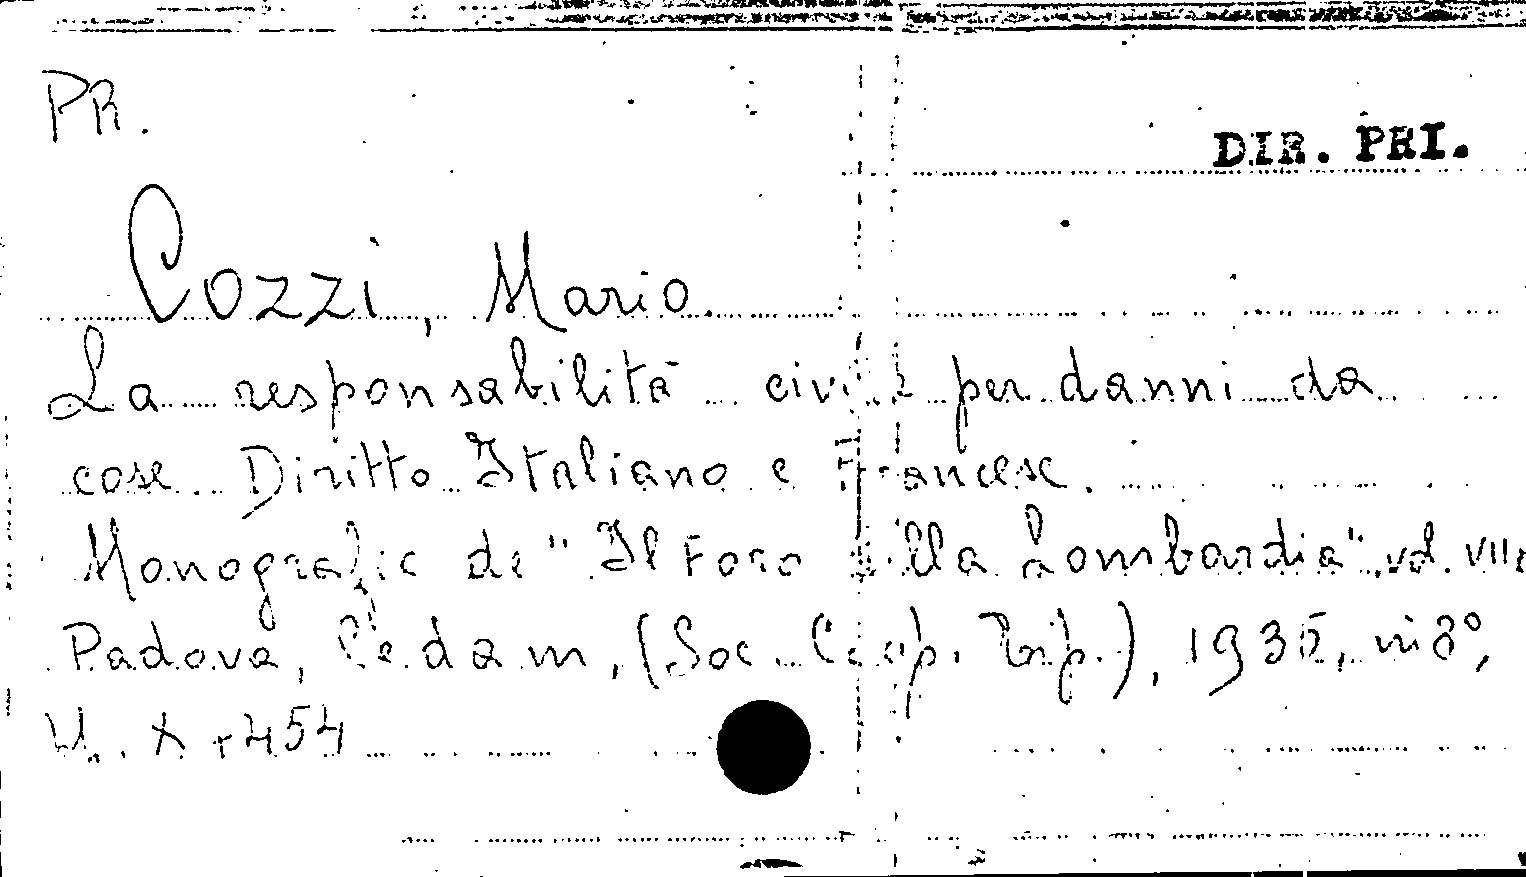 PR.
DIR. PRI.
Cozzi, Mario.
La responsabilità civile per danni da
cose. Diritto Italiano e Francese.
Monografie de "Il Foro della Lombardia", vol. VII:
Padova, Cedam, (Soc. Coop. Tip.), 1935, in 8°,
X + 454